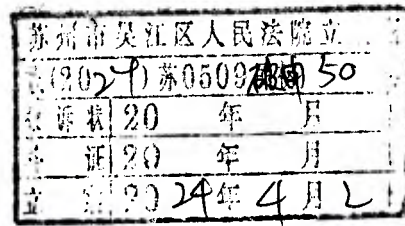 苏州市吴江区人民法院立
(2024)苏0509 50
诉状 20 年 月
证 20 年 月
立 2024年4月2